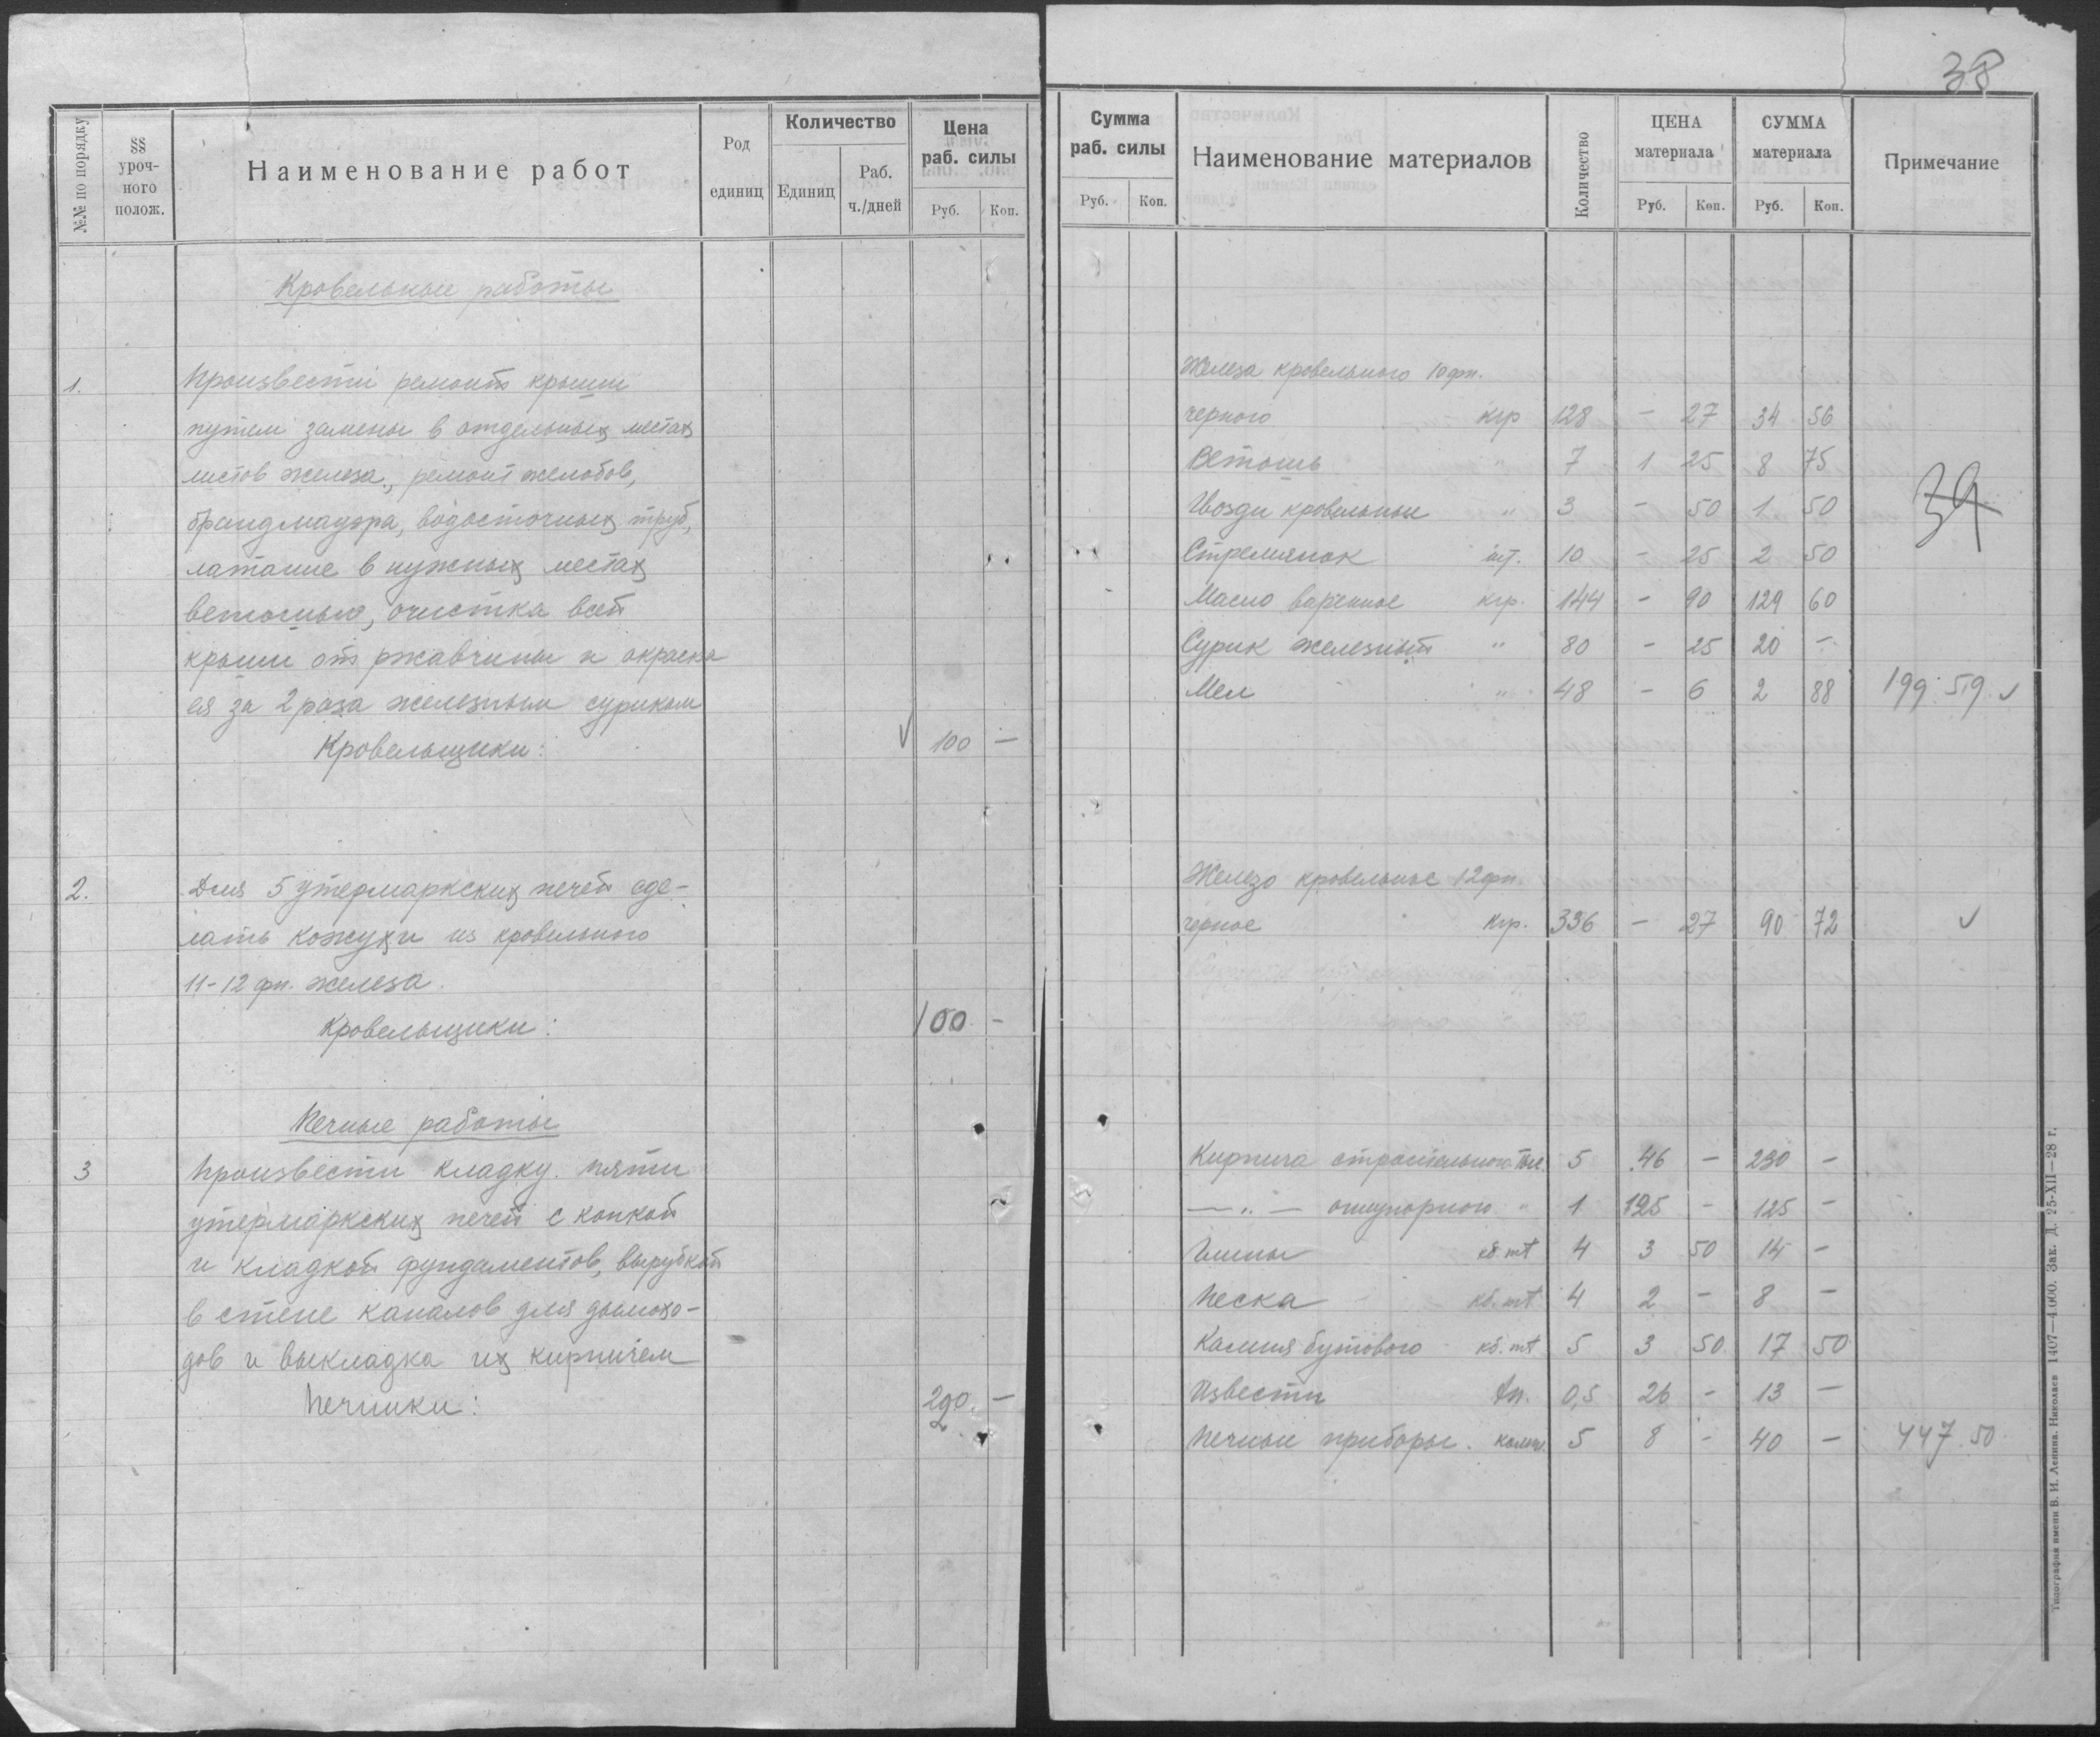 №№ по порядку
§§ уроч-ного полож.
Наименование работ
Род единиц
Количество
Единиц
Раб. ч./дней
Цена раб. силы
Руб. Коп.
Кровельные работы
1. Произвести ремонт крыши
путем замены в отдельных местах
листов железа, ремонт желобов,
брандмауэра, водосточных труб,
латание в нужных местах
ветошью, очистка всей
крыши от ржавчины и окраска
ея за 2 раза железным суриком
Кровельщики: 100 —
2. Для 5 утермаркских печей сде-
лать кожухи из кровельного
11-12 фн. железа.
Кровельщики: 100 -
Печные работы
3 Произвести кладку пяти
утермаркских печей с копкой
и кладкой фундаментов, вырубкой
в стене каналов для дымохо-
дов и выкладка их кирпичем
Печники: 290. —
38
Сумма раб. силы
Руб. Коп.
Наименование материалов
Количество
ЦЕНА материала
Руб. Коп.
СУММА материала
Руб. Коп.
Примечание
Железа кровельного 10 фн.
черного кгр 128 - 27 34 56
Ветошь " 7 1 25 8 75
Гвозди кровельные " 3 - 50 1 50
39
Стремянок шт. 10 - 25 2 50
Масло вареное кгр. 144 - 90 129 60
Сурик железный " 80 - 25 20 -
Мел " 48 - 6 2 88 199.59
Железо кровельное 12 фн.
черное кгр. 336 - 27 90 72
Кирпича строительного тыс. 5 46 - 230 -
— „ — огнупорного " 1 125 - 125 -
Глины кб. mt 4 3 50 14 -
Песка кб. mt 4 2 - 8 -
Камня бутового кб. mt 5 3 50 17 50
Извести тн. 0,5 26 - 13 -
Печные приборы. компл. 5 8 - 40 - 447.50
Типография имени В. И. Ленина. Николаев 1407—4.000. Зак. Д. 25-XII—28 г.